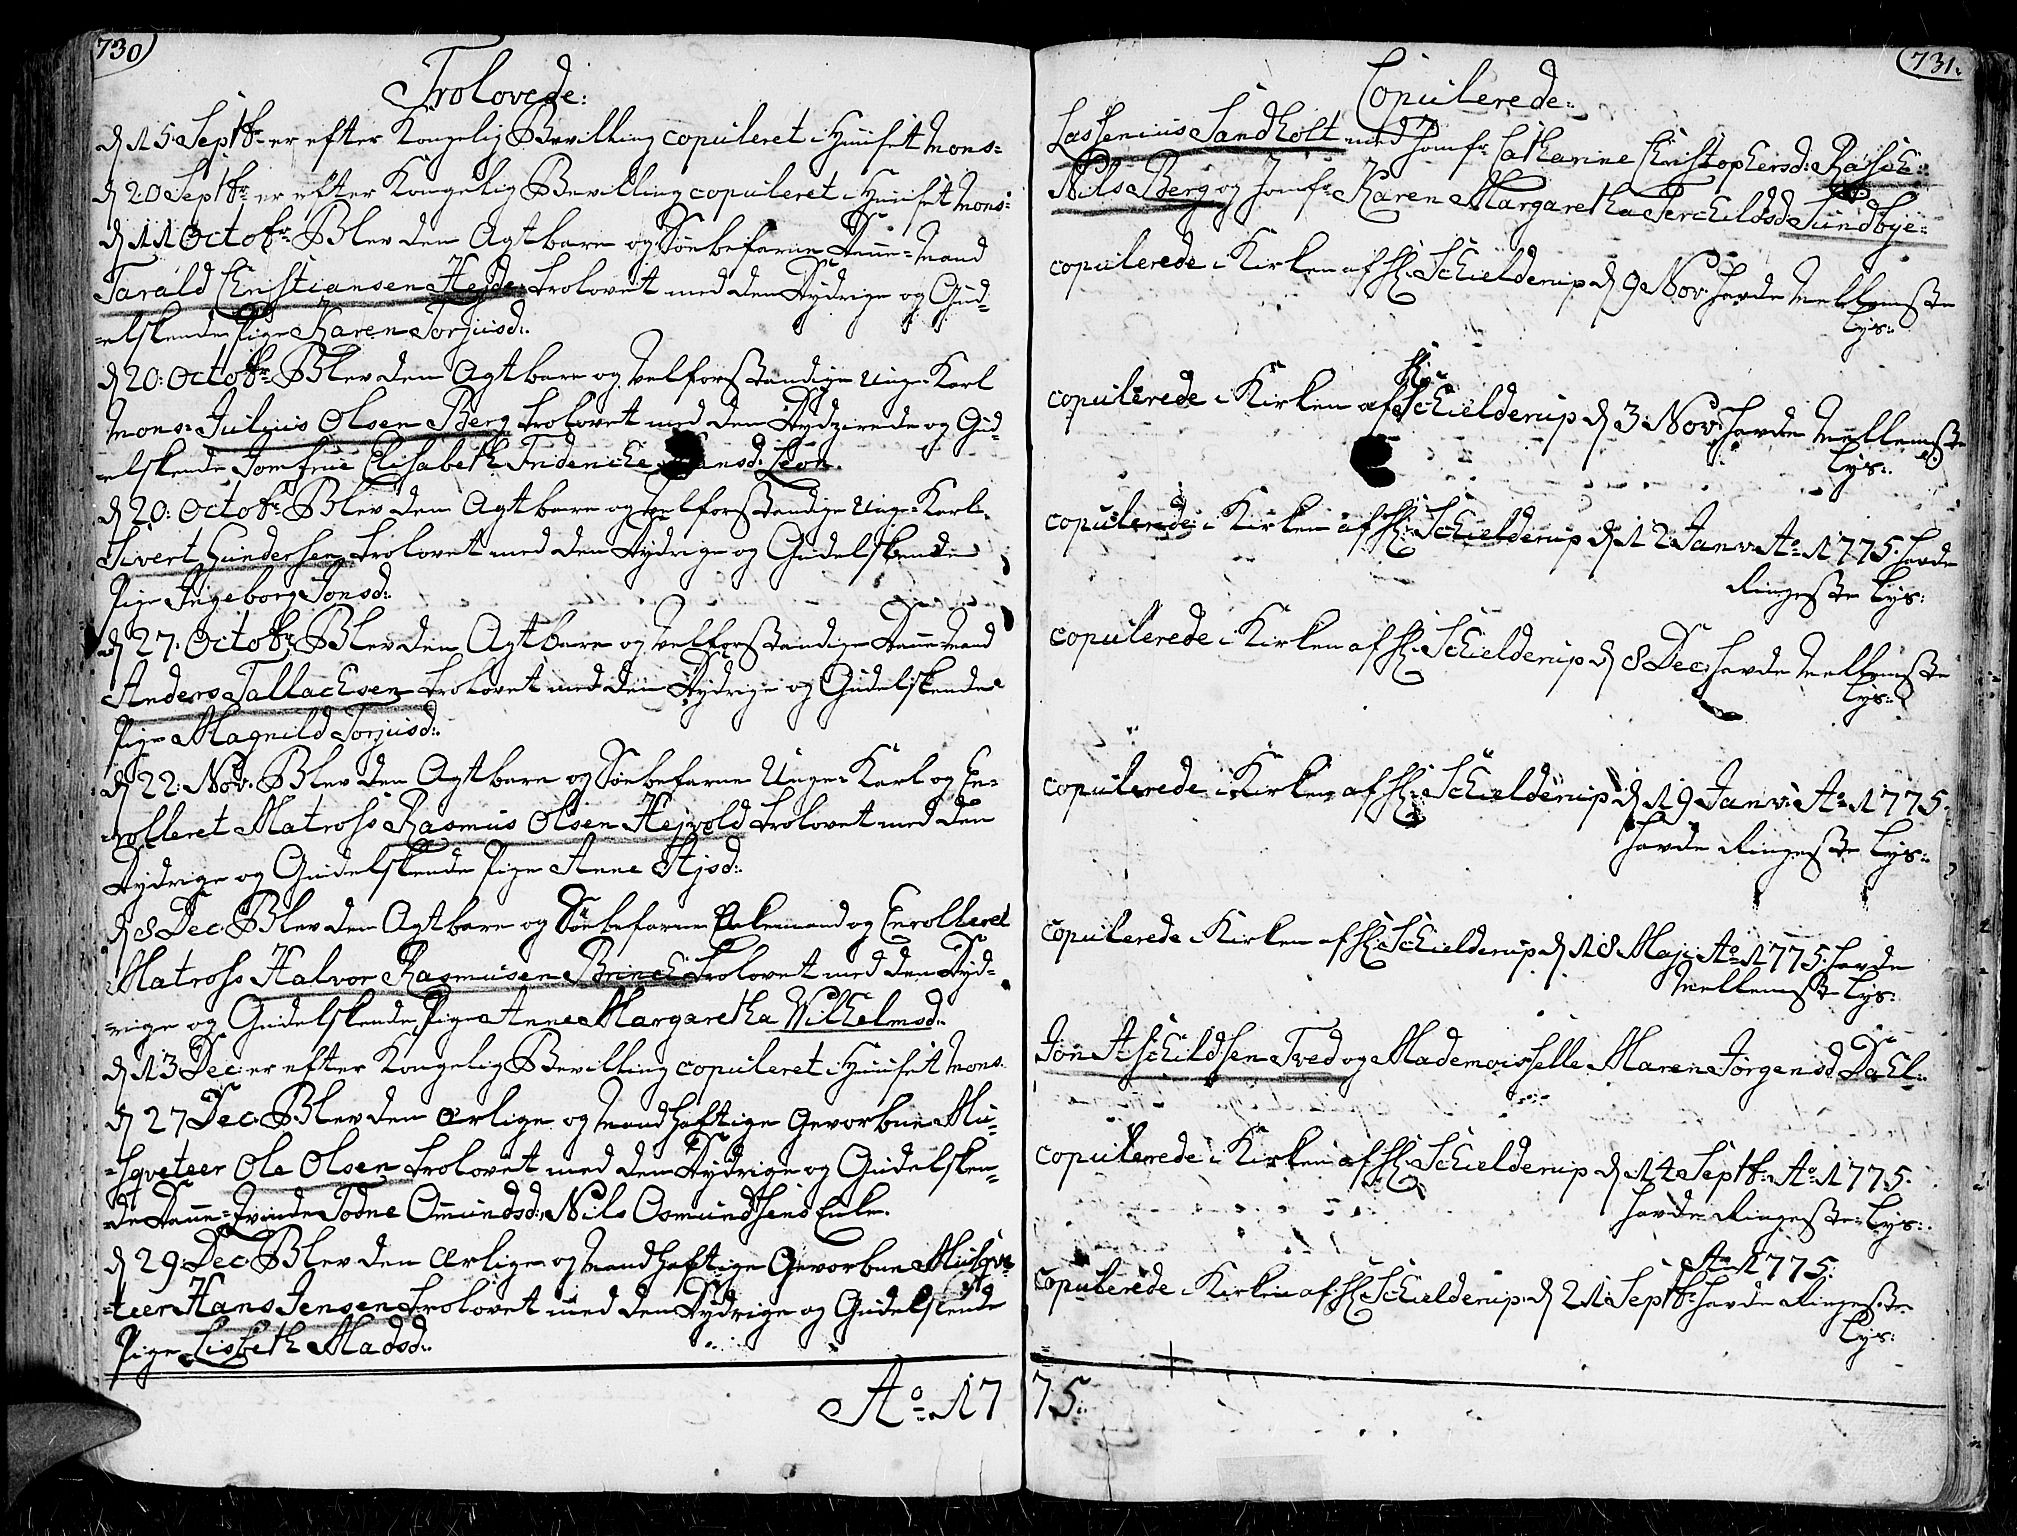 730
Trolovede:
d 15 Septbr er efter Kongelig Bevilling copuleret i Huuset Mons:
d 20 Septbr er efter Kongelig Bevilling copuleret i Huuset Mons:
d 11 Octobr: Blev den Agtbare og Søebefarne Danne-Mand
Tarald Christiansen Hejde trolovet med den Dydrige og Gud-
=elskende Pige Karen Torjusd:.
d 20: Octobr: Blev den Agtbare og Velforstandige Unge-Karl
Mons: Julius Olsen Berg trolovet med den Dydzirede og Gud-
=elskende Jomfrue Elisabeth Frideriche Leon.
d 20: Octobr: Blev den Agtbare og Velforstandige Unge-Karl
Sivert Gundersen trolovet med den Dydrige og Gudelskende
Pige Ingeborg Jonsd:.
d 27: Octobr: Blev den Agtbare og Velforstandige Danne Mand
Anders Tallachsen trolovet med den Dydrige og Gudelskende
Pige Magnild Torjusd:.
d 22: Nov: Blev den Agtbare og Søebefarne Unge-Karl og En-
=rolleret Matross Rasmus Olsen Hejvold trolovet med den
Dydrige og Gudelskende Pige Anne
d 8 Dec: Blev den Agtbare og Søebefarne Enkemand og Enrolleret
Matross Halvor Rasmusen Brinch trolovet med den Dyd-
=rige og Gudelskende Pige Anne Margaretha Wilhelmsd:.
d 13 Dec: er efter Kongelig Bevilling copuleret i Huuset Mons:
d 27 Dec: Blev den ærlige og Mandhaftige Gevorbne Mu-
=sqveteer Ole Olsen trolovet med den Dydrige og Gudelsken-
de Danne-Qvinde Todne Omundsd: Nils Osmundsens Enke.
d 29: Dec: Blev den ærlige og Mandhaftige Gevorbne Musqve-
=teer Hans Jensen trolovet med den Dydrige og Gudelskende
Pige Lisbeth Madsd:.
Ao 17
731.
Copulerede:
Lassenius Sandholt med Jomfr Catharine Christophersd: Rasch:.
Nils Berg og Jomfr Karen Margaretha Terchildsd Sundbye:.
copulerede i Kirken af H: Schielderup d 9 Nov: havde Mellemste
Lys:.
copulerede i Kirken af H: Schielderup d 3: Nov: havde Mellemste
Lys:.
copulerede i Kirken af H: Schielderup d 12 Janv: Ao 1775. havde
Ringeste Lys:
copulerede i Kirken af H: Schielderup d 8 Dec: havde Mellemste
Lys:
copulerede i Kirken af H: Schielderup d 19 Janv: Ao 1775.
havde Ringeste Lys:.
copulerede i Kirken af H: Schielderup d 18 Maji Ao 1775. havde
Mellemste Lys:
Jon Aschildsen Tved og Mademoisselle Maren Jørgensd Dahl:.
copulerede i Kirken af H: Schielderup d 14 Septbr: Ao 1775.
havde Ringeste Lys:.
Ao 1775.
copulerede i Kirken af H: Schielderup d 21 Septbr: havde Ringeste
Lys:
75.